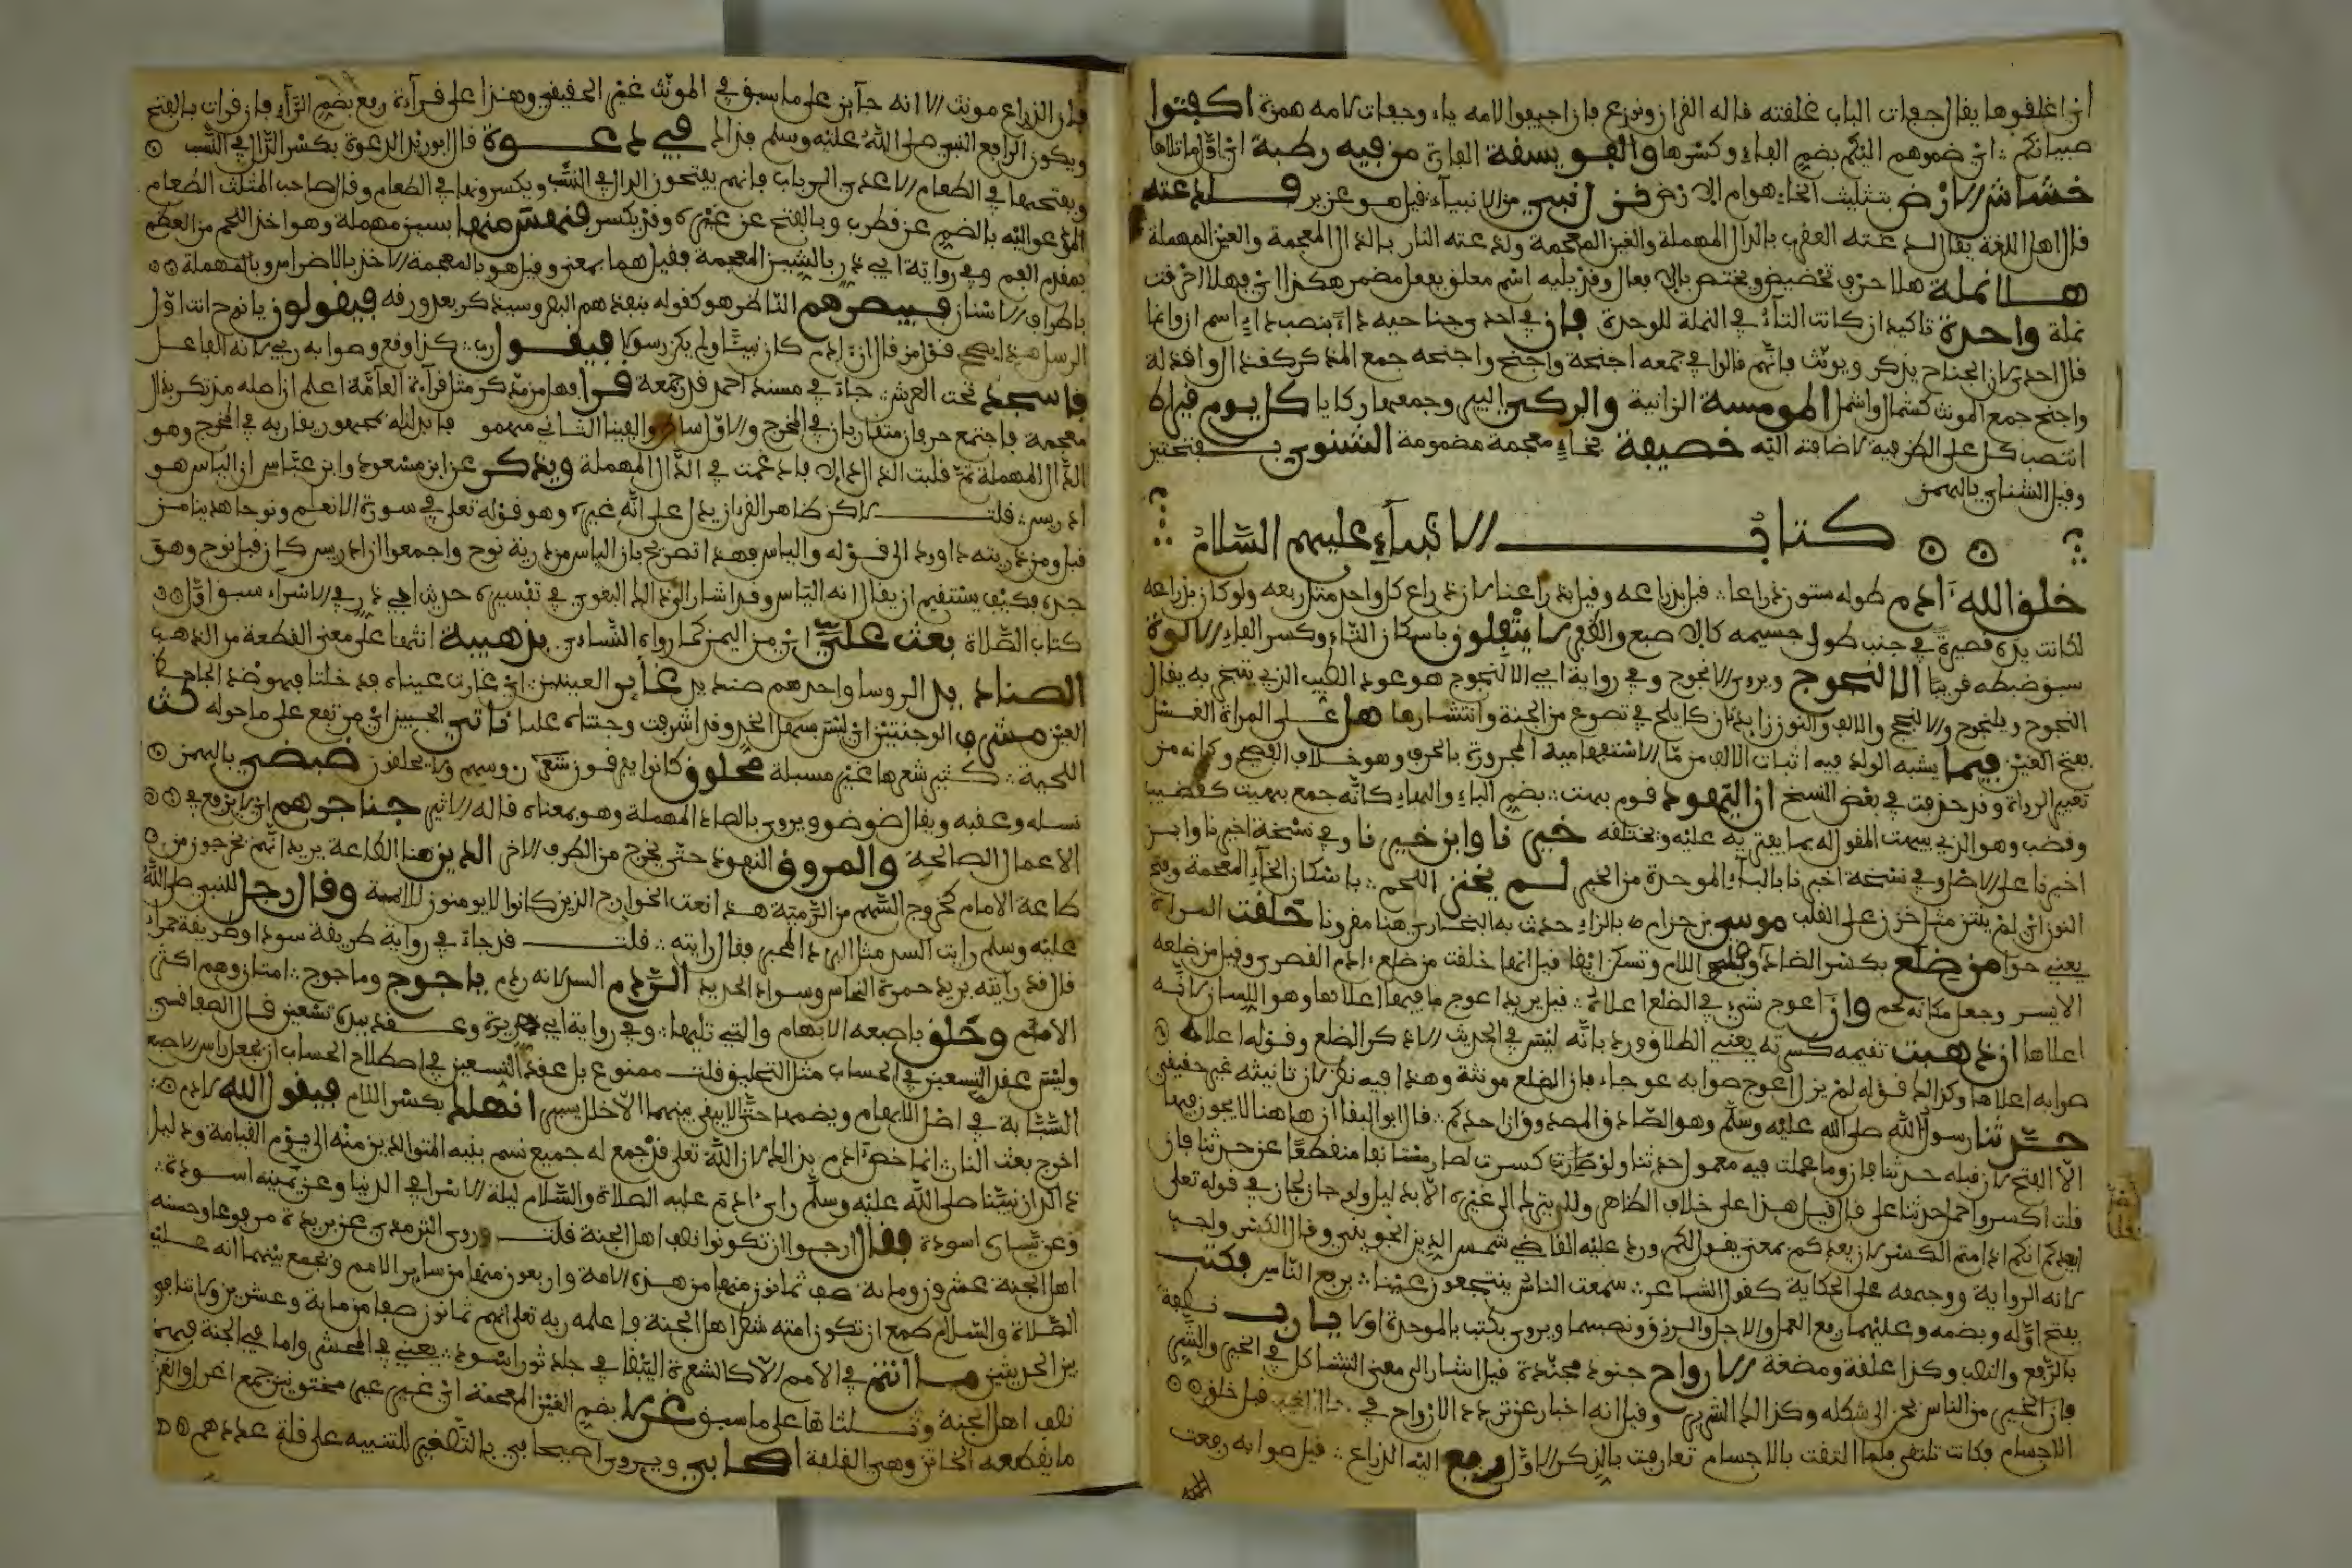 اي اغلقوها يقال جفات الباب غلقته قاله القزاز ونوزع بان اجيفوا لامه ياء وجفات لامه همزة اكفتوا
صبيانكم اي ضموهم اليكم بضم الفاء وكسرها والفويسقة الفارة من فيه رطبة اي اول ما تلاها
خشاش الارض بتثليث الخاء هوام الارض قرن نبي من الانبياء قيل هو عزير فلدغته
قال اهل اللغة يقال لدغته العقرب بالدال المهملة والغين المعجمة ولذعته النار بالذال المعجمة والعين المهملة
هلا نملة هلا حرف تحضيض ويختص بالافعال وقد يليه اسم معلق بفعل مضمر هكذا اي فهلا احرقت
نملة واحدة تاكيد ان كانت التاء في النملة للوحدة فان في احد وجناحيه داء بنصب داء اسم ان وانما
قال احدى لان الجناح يذكر ويونث فانهم قالوا في جمعه اجنحة واجنح واجنحة جمع المذكر كقذال واقذلة
واجنح جمع المونث كشمال واشمل المومسة الزانية والركي البير وجمعها ركايا كل يوم قيراط
انتصب كل على الظرفية لاضافته اليه خصيفة بخاء معجمة مضمومة الشنوي بفتحتين
وقيل الشناي بالهمز
كتاب الانبياء عليهم السلام
خلق الله آدم طوله ستون ذراعا قيل بذراعه وقيل بذراعنا لان ذراع كل واحد مثل ربعه ولو كان بذراعه
لكانت يده قصيرة في جنب طول جسمه كالاصبع والظفر لا يتفلون باسكان التاء وكسر الفاء الالوة
سبق ضبطه قريبا الالنجوج ويروى الانجوج وفي رواية ابي الالنجوج هو عود الطيب الذي يتبخر به يقال
النجوج ويلنجوج والالنجج والالف والنون زايدتان كانه يلج في تضوع من الجنة وانتشارها هل على المراة الغسل
بفتح الغين فبما يشبه الولد فيه اثبات الالف من ما الاستفهامية المجرورة بالحرف وهو خلاف الفصيح وكانه من
تغيير الرواة وقد حذفت في بعض النسخ ان اليهود قوم بهت بضم الباء والهاء كانه جمع بهيت كقضيب
وقضب وهو الذي يبهت المقول له بما يفتريه عليه ويختلقه خيرنا وابن خيرنا وفي نسخة اخيرنا وابن
اخيرنا على الاصل وفي نسخة اخبرنا بالباء الموحدة من الخبر لم يخنز اللحم باسكان الخاء المعجمة وفتح
النون اي لم ينتن مثل خزن على القلب موسى بن حزام بالزاء حدث به البخاري هنا مقرونا خلقت المراة
يعني حوا من ضلع بكسر الضاد وفتح اللام وتسكن ايضا قيل انها خلقت من ضلع ادم القصرى وقيل من ضلعه
الايسر وجعل مكانه لحم وان اعوج شيء في الضلع اعلاه قيل يريد اعوج ما فيها اعلاها وهو اللسان لانه
اعلاها ان ذهبت تقيمه كسرته يعني الطلاق ورد بانه ليس في الحديث الا ذكر الضلع وقوله اعلاه
صوابه اعلاها وكذا الم قوله لم يزل اعوج صوابه عوجاء فان الضلع مونثة وهذا فيه نظر لان تانيثه غير حقيقي
حدثنا رسول الله صلى الله عليه وسلم وهو الصادق المصدوق ان احدكم قال ابو البقا ان هاهنا لا يجوز فيها
الا الفتح لان قبله حدثنا فان وما عملت فيه معمول حدثنا ولو كسرت لصار مستانفا منقطعا عن حدثنا فان
قلت اكسر واحمل حدثنا على قال قيل هذا على خلاف الظاهر ولا يترك الى غيره الا بدليل ولو جاز لجاز في قوله تعلى
ايعدكم انكم اذا متم الكسر لان يعدكم بمعنى يقول لكم ورد عليه القاضي شمس الدين الخويي وقال الكسر واجب
لانه الرواية ووجهه على الحكاية كقول الشاعر سمعت الناس ينتجعون غيثا برفع الناس فكتب
بفتح اوله وبضمه وعليهما رفع العمل والاجل والرزق ونصبهما ويروى بكتب بالموحدة اولا يا رب نطفة
بالرفع والنصب وكذا علقة ومضغة الارواح جنود مجندة قيل اشار الى معنى التشاكل في الخير والشر
فان الخير من الناس يحن الى شكله وكذا الم الشرير وقيل انه اخبار عن تردد الارواح في حال الغيب قبل خلق
الاجسام فكانت تلتقي فلما التقت بالاجسام تعارفت بالذكر الاول ورفع اليه الذراع قيل صوابه رفعت
فان الذراع مونث الا انه جايز على ما سبق في المونث غير الحقيقي وهذا على قراءة رفع بضم الراء فان قرات بالفتح
ويكون الرافع النبي صلى الله عليه وسلم فذاك في دعوة قال ابو زيد الدعوة بكسر الدال في النسب
وبفتحها في الطعام الا عدي الرباب فانهم يفتحون الدال في النسب ويكسرونها في الطعام وقال صاحب المثلث الطعام
المدعو اليه بالضم عن قطرب وبالفتح عن غيره وقد يكسر فنهس منها بسين مهملة وهو اخذ اللحم من العظم
بمقدم الفم وفي رواية ابي ذر بالشين المعجمة فقيل هما بمعنى وقيل هو بالمعجمة الاخذ بالاضراس وبالمهملة
باطراف الاسنان فيبصرهم الناظر هو كقوله ينفذهم البصر وسيذكر بعد ورقه فيقولون يا نوح انت اول
الرسل هذا يصحح قول من قال ان ادم كان نبيا ولم يكن رسولا فيقول رب كذا وقع وصوابه ربي لانه الفاعل
فاسجد تحت العرش جاء في مسند احمد قدر جمعة قرا فهل من مدكر مثل قراءة العامة اعلم ان اصله مذتكر بذال
معجمة فاجتمع حرفان متقاربان في المخرج والاول ساكن والفينا الثاني مهمو فابدلناه بمجهور يقاربه في المخرج وهو
الدال المهملة ثم قلبت الذال دالا فادغمت في الدال المهملة ويذكر عن ابن مسعود وابن عباس ان الياس هو
ادريس قلت لاكن ظاهر القرآن يدل على انه غيره وهو قوله تعلى في سورة الانعام ونوحا هدينا من
قبل ومن ذريته داود الى قوله والياس فهذا تصريح بان الياس من ذرية نوح واجمعوا ان ادريس كان قبل نوح وهو
جده فكيف يستقيم ان يقال انه الياس وقد اشار الى ذلك البغوي في تفسيره حديث ابي ذر في الاسراء سبق اول
كتاب الصلاة بعث علي اي من اليمن كما رواه النساءي بذهيبة انثها على معنى القطعة من الذهب
الصناديد الروسا واحدهم صنديد غاير العينين اي غارت عيناه فدخلتا فهو ضد الجاحظ
العين مشرف الوجنتين اي ليس سهل الخد وقد اشرفت وجنتاه علتا ناتي الجبين اي مرتفع على ما حوله كث
اللحية كثير شعرها غير مسبلة محلوق كانوا يفرقون شعر روسهم ولا يحلقون ضيضي بالهمز
نسله وعقبه ويقال ضوضو ويروى بالصاد المهملة وهو بمعناه قاله ابن الاثير حناجرهم اي لا يرفع في
الاعمال الصالحة والمروق النفوذ حتى يخرج من الطرف الاخر الدين هنا الطاعة يريد انهم يخرجون من
طاعة الامام كخروج السهم من الرمية هذا نعت الخوارج الذين كانوا لا يومنون للايمة وقال رجل للنبي صلى الله
عليه وسلم رايت السد مثل البرد المحبر فقال رايته قلت قد جاء في رواية طريقة سودا وطريقة حمراء
قال قد رايته يريد حمرة النحاس وسواد الحديد الردم السد لانه ردم ياجوج وماجوج امتان وهم اكثر
الامم وحلق باصبعه الابهام والتي تليها وفي رواية ابي هريرة وعقد بيده تسعين قال الصفاقسي
وليس عقد التسعين في الحساب مثل التحليق قلت ممنوع بل عقد التسعين في اصطلاح الحساب ان يجعل راس الاصبع
السبابة في اصل الابهام ويضمها حتى لا يبقى بينهما الا خلل يسير انهلك بكسر اللام فيقول الله لادم
اخرج بعث النار انما خص آدم بذلك لان الله تعلى قد جمع له جميع نسم بنيه المتوالدين منه الى يوم القيامة ودليل
ذلك ان نبينا صلى الله عليه وسلم راى ادم عليه الصلاة والسلام ليلة الاسرا في الدنيا وعن يمينه اسودة
وعن يساره اسودة فقال ارجوا ان تكونوا نصف اهل الجنة قلت وروى الترمذي عن بريدة مرفوعا وحسنه
اهل الجنة عشرون وماية صف ثمانون منها من هذه الامة واربعون منها من ساير الامم ونجمع بينهما انه عليه
الصلاة والسلام طمع ان تكون امته شطر اهل الجنة فاعلمه ربه تعلى انهم ثمانون صفا من ماية وعشرين ولا تنافي
بين الحديثين ما انتم في الامم الا كالشعرة البيضا في جلد ثور اسود يعني في المحشر واما في الجنة فهم
نصف اهل الجنة وثلثاها على ما سبق غرلا بضم الغين المعجمة اي غير مختونين جمع اغرل والغر
ما يقطعه الخاتن وهي القلفة اصحابي ويروى اصيحابي بالتصغير للتنبيه على قلة عددهم